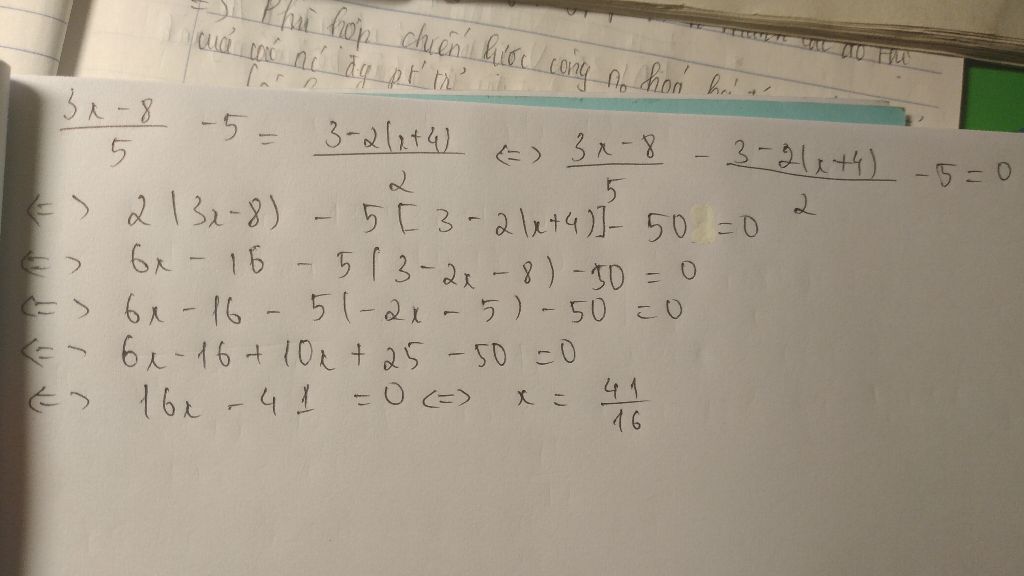 Phù hợp chiến lược công
quá các
3x - 8 / 5 - 5 = 3 - 2(x + 4) / 2 <=> 3x - 8 / 5 - 3 - 2(x + 4) / 2 - 5 = 0
<=> 2(3x - 8) - 5[3 - 2(x + 4)] - 50 = 0
<=> 6x - 16 - 5(3 - 2x - 8) - 50 = 0
<=> 6x - 16 - 5(-2x - 5) - 50 = 0
<=> 6x - 16 + 10x + 25 - 50 = 0
<=> 16x - 41 = 0 <=> x = 41 / 16